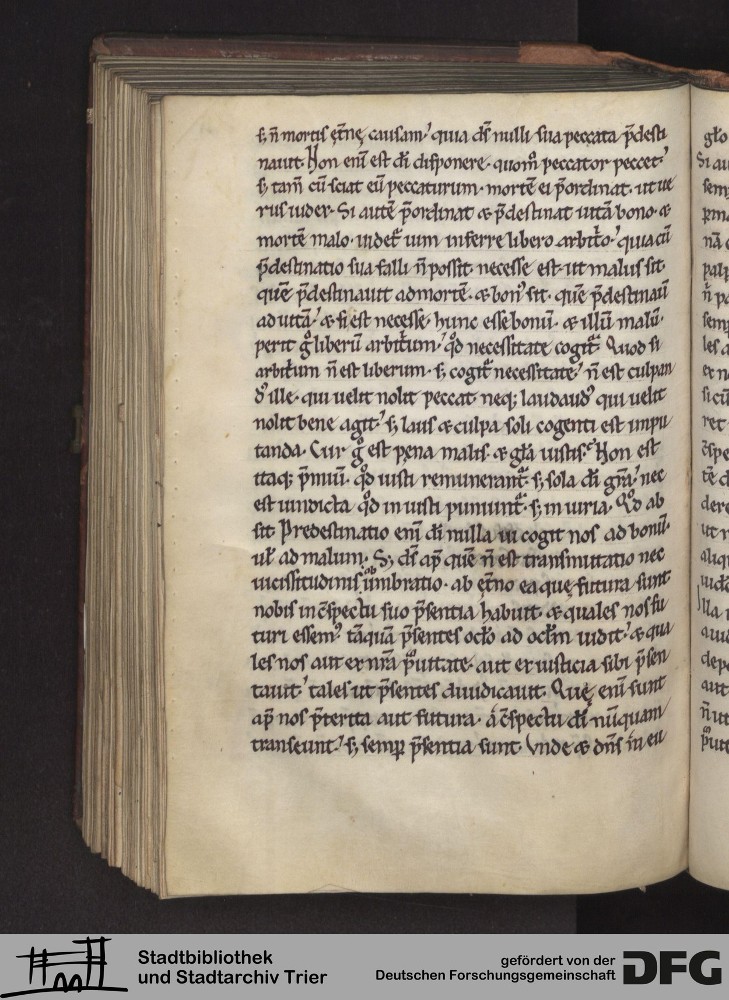 s; n̄ mortis ęt̄nę causam; quia ds̄ nulli sua peccata p̄desti
nauit. Non eni̅ est di̅ disponere. quom̅ peccator peccet;
s; tam̅ cu̅ sciat eu̅ peccaturum. morte̅ ei p̄ordinat. ut ue
rus iudex. Si aute̅ p̄ordinat & p̄destinat uita̅ bono. &
morte̅ malo. uidet᷑ uim inferre libero arbit̄o. quia cu̅
p̄destinatio sua falli n̄ possit. necesse est ut malus sit
que̅ p̄destinauit ad morte̅. & bon᷒ sit. que̅ p̄destinauit
ad uita̅; & si est necesse. hunc esse bonu̅. & illu̅ malu̅.
perit gͦ liberu̅ arbit̄um. qd̅ necessitate cogit᷑. Quod si
arbit̄um n̄ est liberum. s; cogit᷑ necessitate; n̄ est culpan
d᷒ ille. qui uelit nolit peccat neq; laudand᷒ qui uelit
nolit bene agit; s; laus & culpa soli cogenti est impu
tanda. Cur gͦ est pęna malis. & gl̅a iustis? Non est
itaq; p̄miu̅. qd̅ iusti remunerant᷑. s; sola di̅ gr̅a; nec
est uindicta qd̅ iniusti puniunt᷑. s; iniuria. Qd̅ ab
sit. Predestinatio eni̅ di̅ nulla ui cogit nos ad bonu̅.
ul̅ ad malum. S; ds̄ ap̅ que̅ n̄ est transmutatio nec
uicissitudinis obumbratio. ab ęt̄no ea quę futura sunt
nobis in c̅spectu suo p̄sentia habuit. & quales nos fu
turi essem᷒ ta̅qua̅ p̄sentes oc̅lo ad oc̅lm uidit; & qua
les nos aut ex nr̅a p̄uitate. aut ex iusticia sibi p̄sen
tauit; tales ut p̄sentes diuudicauit. Quę eni̅ sunt
ap̅ nos p̄terita aut futura. a c̅spectu di̅ nu̅quam
transeunt; s; semp̲ p̄sentia sunt. Vnde & dn̅s in eu
glo
Si au
sem
nā
palp
n̄ pa
sem
les a
ex n
si cū
ret
c̅spe
te̅ d
dere
ut n
aliq
lla
aut
n̄ ut
Stadtbibliothek
und Stadtarchiv Trier
gefördert von der
Deutschen Forschungsgemeinschaft
DFG